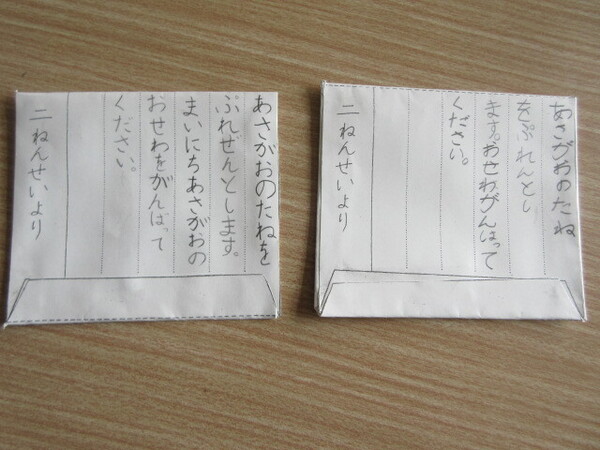 あさがおのたねを
ぷれぜんとします。
まいにちあさがおの
おせわをがんばって
ください。
二ねんせいより
あさがおのたね
をぷれんとし
ます。おせわがんばって
ください。
二ねんせいより